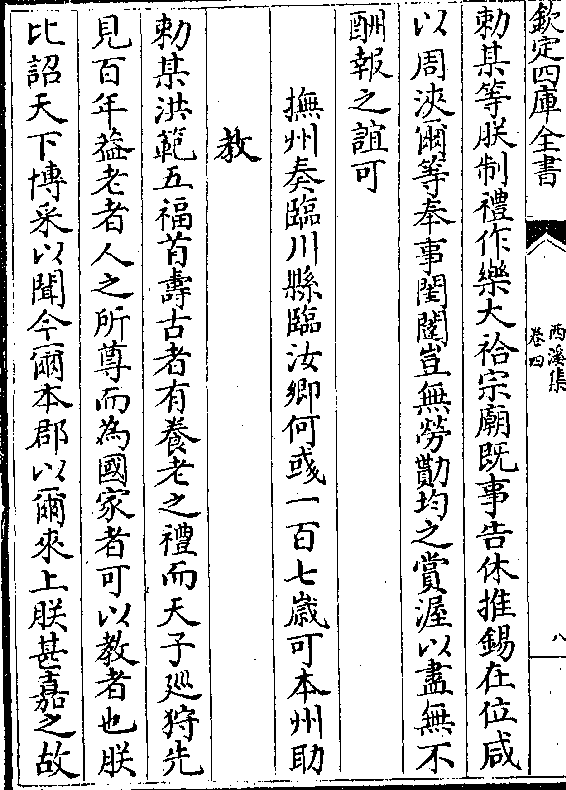 欽定四庫全書
西溪集
卷四
八
勅某等朕制禮作樂大祫宗廟既事告休推錫在位咸
以周浹爾等奉事閨闥豈無勞勩均之賞渥以盡無不
酬報之誼可
撫州奏臨川縣臨汝鄉何彧一百七歲可本州助
教
勅某洪範五福首壽古者有養老之禮而天子廵狩先
見百年葢老者人之所尊而為國家者可以教者也朕
比詔天下博采以聞今爾本郡以爾來上朕甚嘉之故